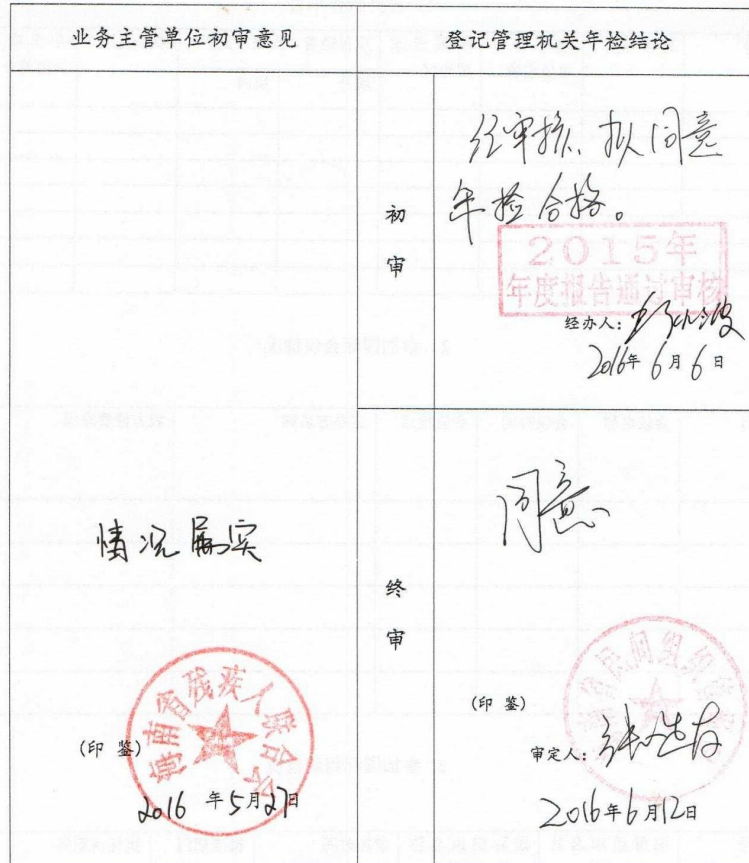 业务主管单位初审意见
登记管理机关年检结论
情况属实
海南省残疾人联合会
(印 鉴)
2016 年5月27日
初
审
经审核、拟同意
年检合格。
2015年
年度报告通过审核
经办人:
2016年6月6日
终
审
同意
(印 鉴)
审定人:
2016年6月12日